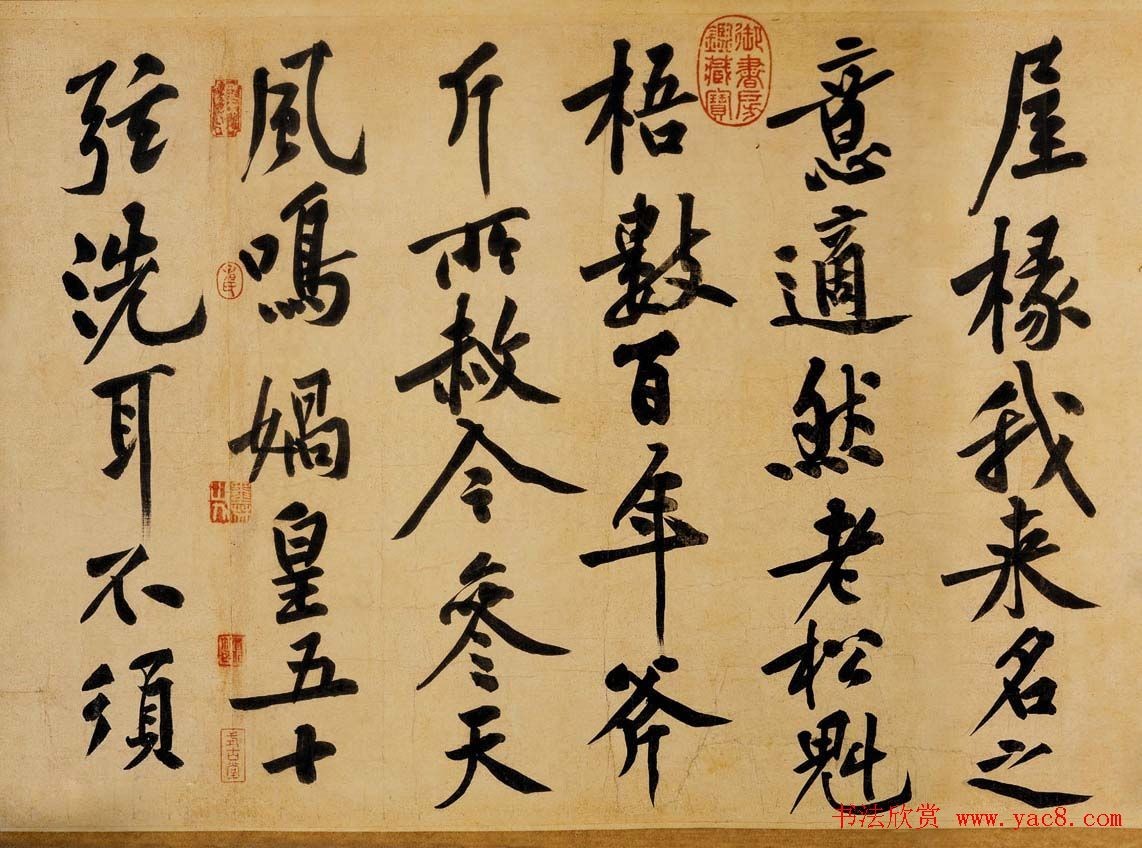 屋椽我来名之
意適然老松魁
梧數百年斧
斤所赦今參天
風鳴媧皇五十
弦洗耳不須
御書房鑑藏寶
式古堂
书法欣赏 www.yac8.com